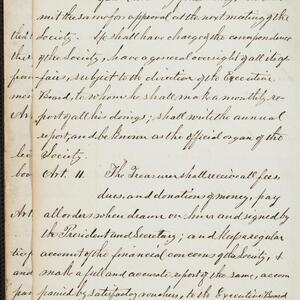 mit the same for approval at the next meeting of the
Society. He shall have charge of the correspondence
of the Society, have a general oversight of all its af-
fairs, subject to the direction of the Executive
Board, to whom he shall make a monthly re-
port of all his doings; shall write the annual
report, and be known as the official organ of the
Society.
Art. 11. The Treasurer shall receive all fees,
dues, and donations of money, pay
all orders when drawn on him and signed by
the President and Secretary; and keep a regular
account of the financial concerns of the Society, &
make a full and accurate report of the same, accom
panied by satisfactory vouchers, to the Executive Board